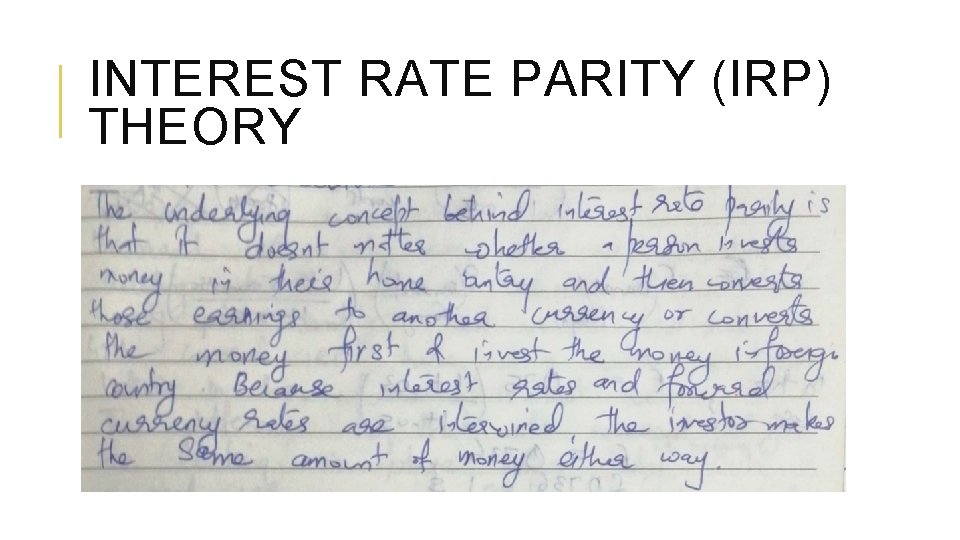 INTEREST RATE PARITY (IRP)
THEORY
The underlying concept behind interest rate parity is
that it doesnt matter whether a person invests
money in their home contry and then converts
those earnings to another currency or converts
the money first & invest the money in foreign
country. Because interest rates and forward
currency rates are interwined, the investor makes
the same amount of money either way.